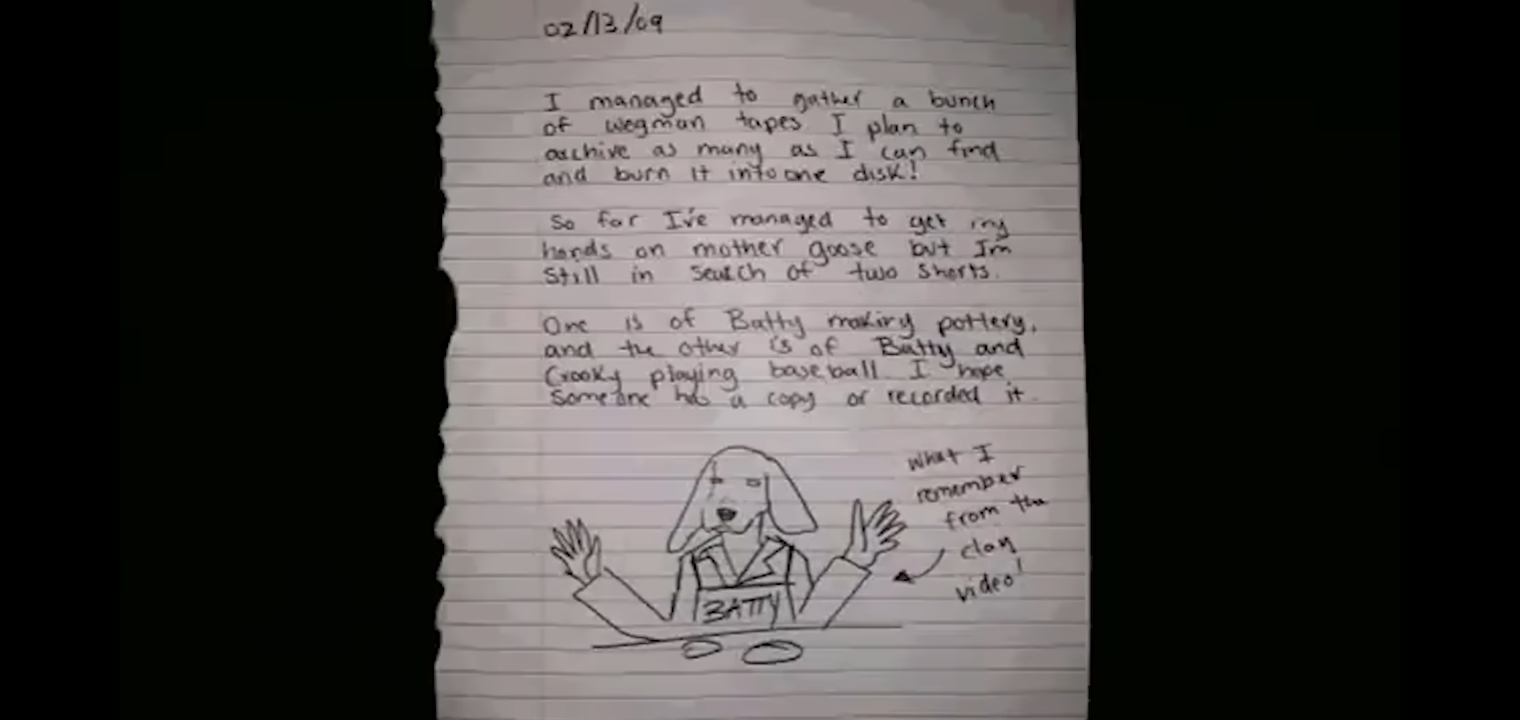 02/13/09
I managed to gather a bunch
of wegman tapes I plan to
archive as many as I can find
and burn it into one disk!
So far I've managed to get my
hands on mother goose but Im
still in search of two shorts.
One is of Batty making pottery,
and the other is of Batty and
Crooky playing baseball. I hope
someone has a copy or recorded it.
what I
remember
from the
clay
video!
BATTY